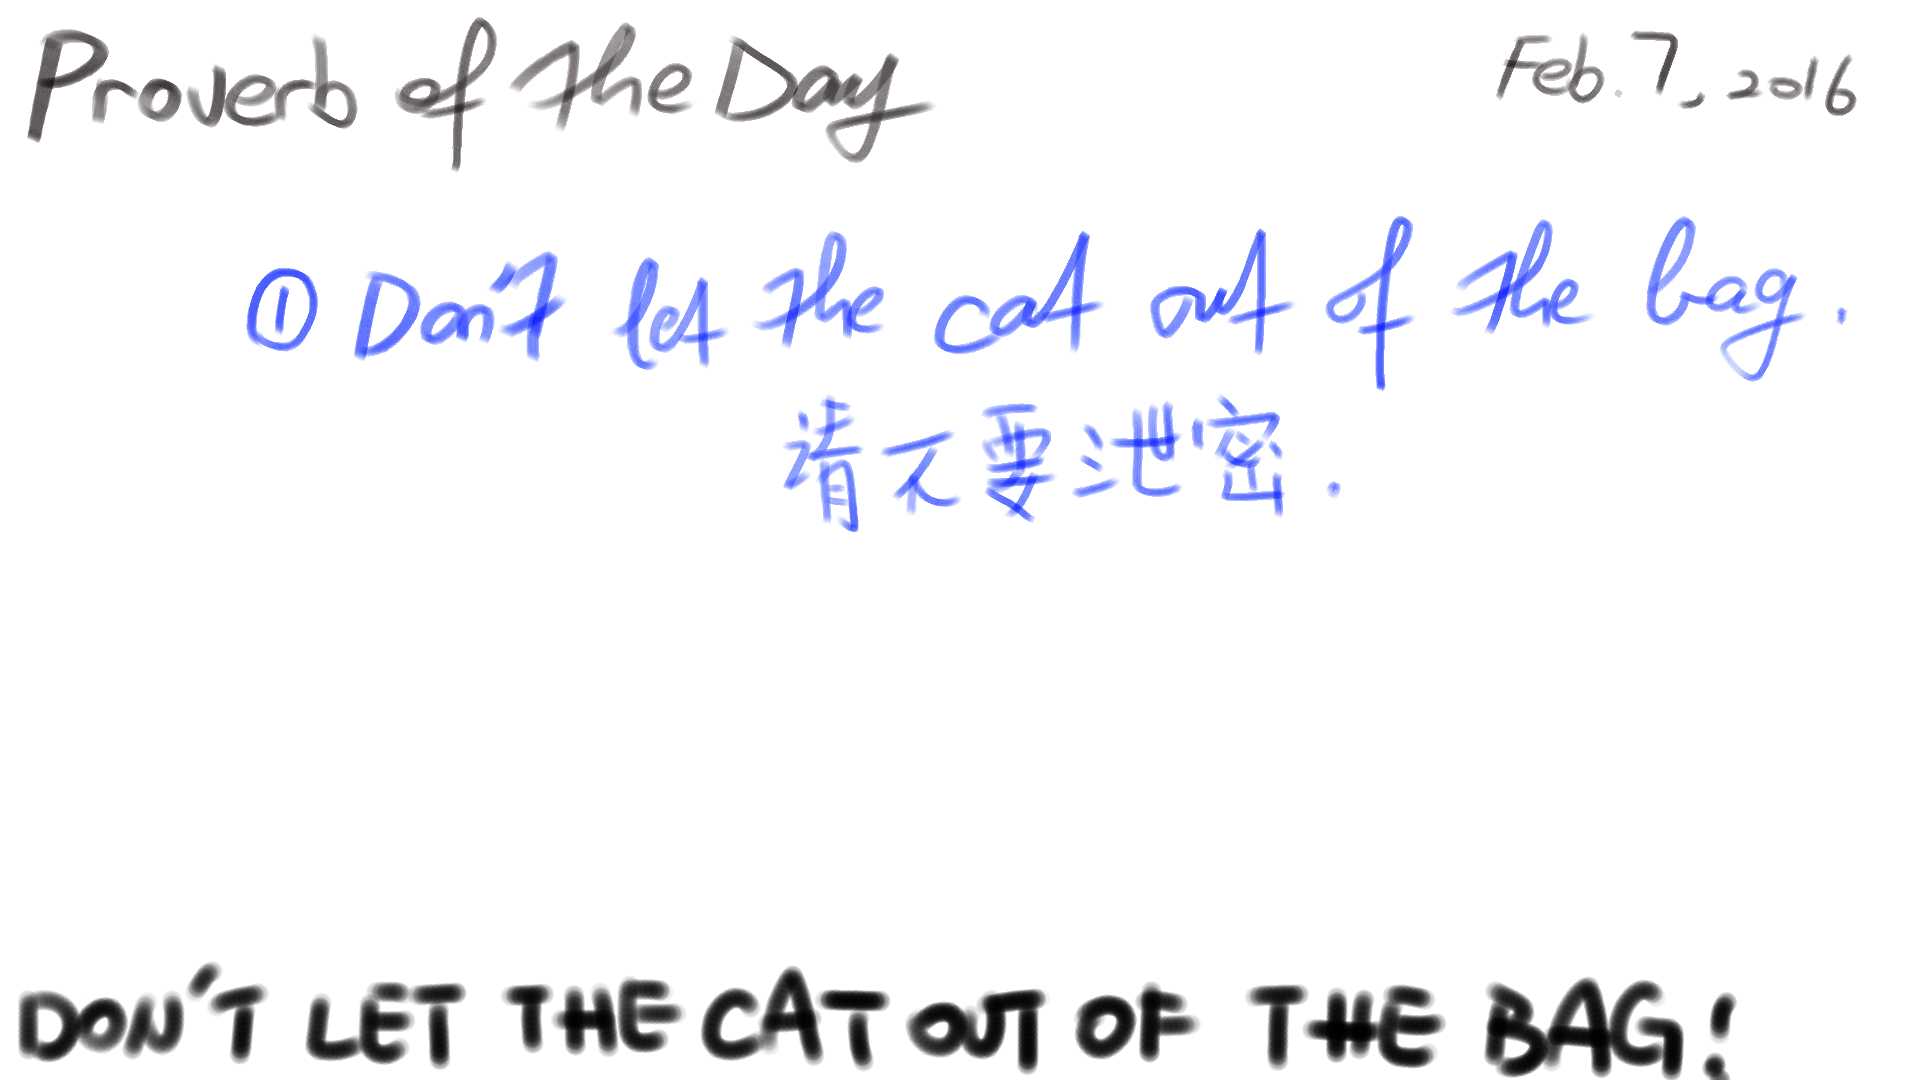 Proverb of the Day
Feb. 7, 2016
① Don't let the cat out of the bag.
请不要泄密.
DON'T LET THE CAT OUT OF THE BAG!